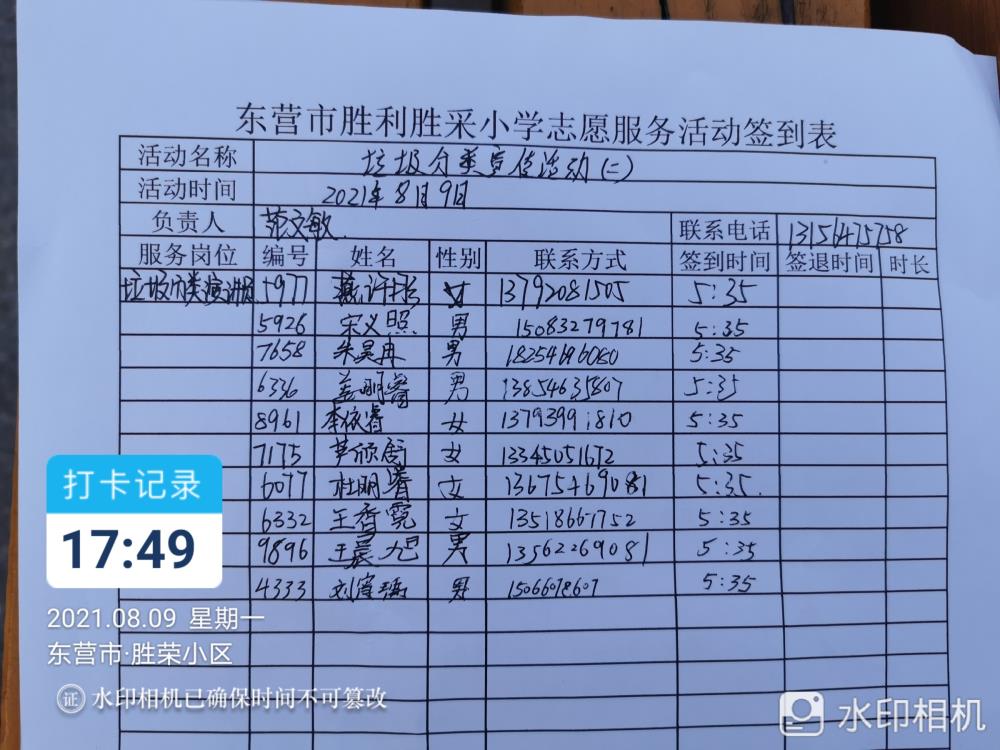 东营市胜利胜采小学志愿服务活动签到表
活动名称 垃圾分类宣传活动(二)
活动时间 2021年8月9日
负责人 范文敏 联系电话 13156475758
服务岗位 编号 姓名 性别 联系方式 签到时间 签退时间 时长
垃圾分类演讲员 5977 女 13792081505 5:35
5926 宋义照 男 15083279781 5:35
7658 朱昊冉 男 18254696080 5:35
6336 盖明睿 男 13854635807 5:35
8961 李依睿 女 13793991810 5:35
7175 女 13345051672 5:35
6077 杜明睿 女 13675469081 5:35
6332 王香霓 女 13518661752 5:35
9896 王晨旭 男 13562269081 5:35
4333 刘 男 15066078607 5:35
打卡记录
17:49
2021.08.09 星期一
东营市·胜荣小区
证 水印相机已确保时间不可篡改
水印相机